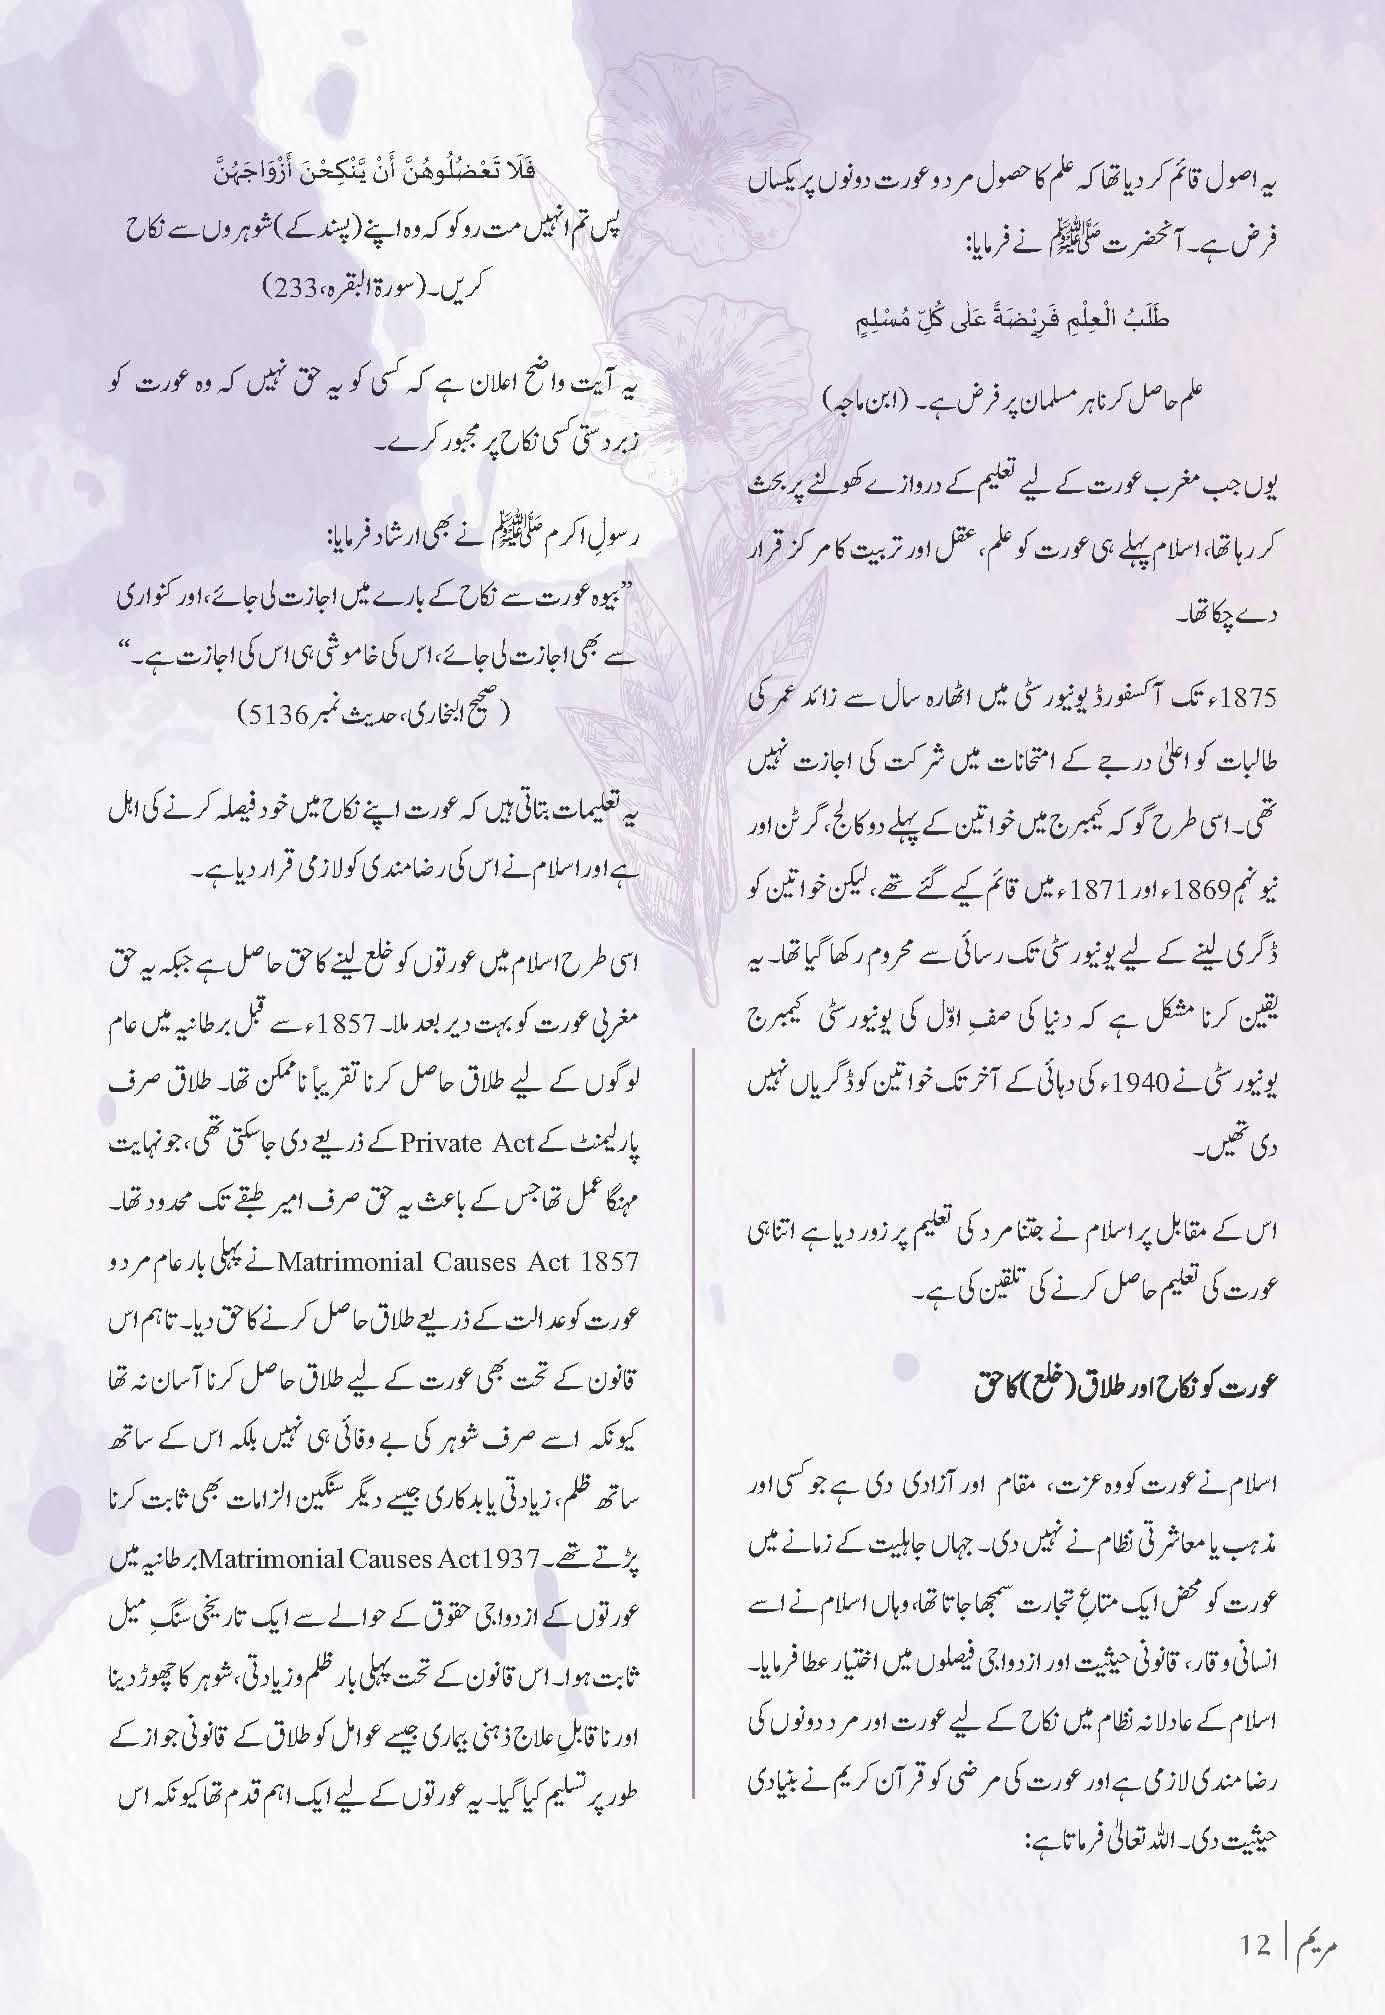 یہ اصول قائم کر دیا تھا کہ علم کا حصول مرد و عورت دونوں پر یکساں
فرض ہے۔ آنحضرت ﷺ نے فرمایا:
طَلَبُ الْعِلْمِ فَرِيْضَةٌ عَلٰى كُلِّ مُسْلِمٍ
علم حاصل کرنا ہر مسلمان پر فرض ہے۔ (ابن ماجہ)
یوں جب مغرب عورت کے لیے تعلیم کے دروازے کھولنے پر بحث
کر رہا تھا، اسلام پہلے ہی عورت کو علم، عقل اور تربیت کا مرکز قرار
دے چکا تھا۔
1875ء تک آکسفورڈ یونیورسٹی میں اٹھارہ سال سے زائد عمر کی
طالبات کو اعلیٰ درجے کے امتحانات میں شرکت کی اجازت نہیں
تھی۔ اسی طرح گو کہ کیمبرج میں خواتین کے پہلے دو کالج، گرٹن اور
نیو نہم 1869ء اور 1871ء میں قائم کیے گئے تھے، لیکن خواتین کو
ڈگری لینے کے لیے یونیورسٹی تک رسائی سے محروم رکھا گیا تھا۔ یہ
یقین کرنا مشکل ہے کہ دنیا کی صفِ اوّل کی یونیورسٹی کیمبرج
یونیورسٹی نے 1940ء کی دہائی کے آخر تک خواتین کو ڈگریاں نہیں
دی تھیں۔
اس کے مقابل پر اسلام نے جتنا مرد کی تعلیم پر زور دیا ہے اتنا ہی
عورت کی تعلیم حاصل کرنے کی تلقین کی ہے۔
عورت کو نکاح اور طلاق (خلع) کا حق
اسلام نے عورت کو وہ عزت، مقام اور آزادی دی ہے جو کسی اور
مذہب یا معاشرتی نظام نے نہیں دی۔ جہاں جاہلیت کے زمانے میں
عورت کو محض ایک متاعِ تجارت سمجھا جاتا تھا، وہاں اسلام نے اسے
انسانی وقار، قانونی حیثیت اور ازدواجی فیصلوں میں اختیار عطا فرمایا۔
اسلام کے عادلانہ نظام میں نکاح کے لیے عورت اور مرد دونوں کی
رضامندی لازمی ہے اور عورت کی مرضی کو قرآن کریم نے بنیادی
حیثیت دی۔ اللہ تعالیٰ فرماتا ہے:
فَلَا تَعْضُلُوهُنَّ أَنْ يَّنْكِحْنَ أَزْوَاجَهُنَّ
پس تم انہیں مت روکو کہ وہ اپنے (پسند کے) شوہروں سے نکاح
کریں۔ (سورۃ البقرہ، 233)
یہ آیت واضح اعلان ہے کہ کسی کو یہ حق نہیں کہ وہ عورت کو
زبردستی کسی نکاح پر مجبور کرے۔
رسولِ اکرم ﷺ نے بھی ارشاد فرمایا:
”بیوہ عورت سے نکاح کے بارے میں اجازت لی جائے، اور کنواری
سے بھی اجازت لی جائے، اس کی خاموشی ہی اس کی اجازت ہے۔“
(صحیح البخاری، حدیث نمبر 5136)
یہ تعلیمات بتاتی ہیں کہ عورت اپنے نکاح میں خود فیصلہ کرنے کی اہل
ہے اور اسلام نے اس کی رضامندی کو لازمی قرار دیا ہے۔
اسی طرح اسلام میں عورتوں کو خلع لینے کا حق حاصل ہے جبکہ یہ حق
مغربی عورت کو بہت دیر بعد ملا۔ 1857ء سے قبل برطانیہ میں عام
لوگوں کے لیے طلاق حاصل کرنا تقریباً ناممکن تھا۔ طلاق صرف
پارلیمنٹ کے Private Act کے ذریعے دی جا سکتی تھی، جو نہایت
مہنگا عمل تھا جس کے باعث یہ حق صرف امیر طبقے تک محدود تھا۔
Matrimonial Causes Act 1857 نے پہلی بار عام مرد و
عورت کو عدالت کے ذریعے طلاق حاصل کرنے کا حق دیا۔ تاہم اس
قانون کے تحت بھی عورت کے لیے طلاق حاصل کرنا آسان نہ تھا
کیونکہ اسے صرف شوہر کی بے وفائی ہی نہیں بلکہ اس کے ساتھ
ساتھ ظلم، زیادتی یا بدکاری جیسے دیگر سنگین الزامات بھی ثابت کرنا
پڑتے تھے۔ Matrimonial Causes Act 1937 برطانیہ میں
عورتوں کے ازدواجی حقوق کے حوالے سے ایک تاریخی سنگِ میل
ثابت ہوا۔ اس قانون کے تحت پہلی بار ظلم و زیادتی، شوہر کا چھوڑ دینا
اور ناقابلِ علاج ذہنی بیماری جیسے عوامل کو طلاق کے قانونی جواز کے
طور پر تسلیم کیا گیا۔ یہ عورتوں کے لیے ایک اہم قدم تھا کیونکہ اس
مریم | 12